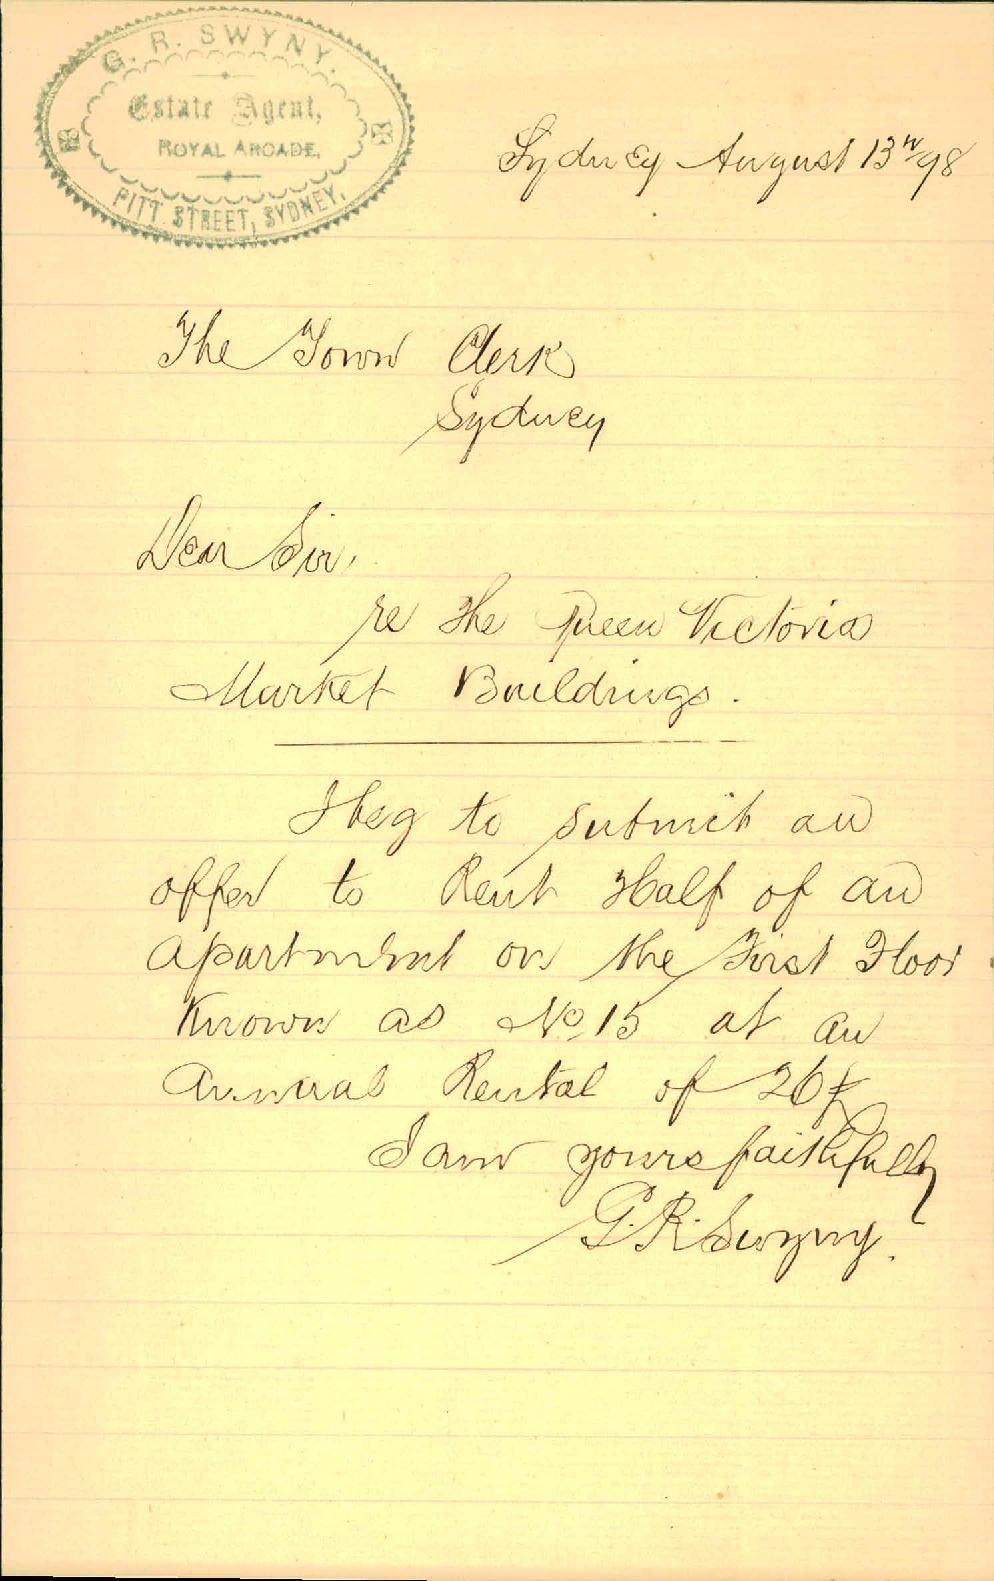 G. R. SWYNY.
Estate Agent,
ROYAL ARCADE,
PITT STREET, SYDNEY.
Sydney August 13th/98
The Town Clerk
Sydney
Dear Sir,
re the Queen Victoria
Market Buildings.
I beg to submit an
offer to Rent Half of an
apartment on the First Floor
Known as No 15 at an
annual Rental of 26£
I am yours faithfully
G. R. Swyny.